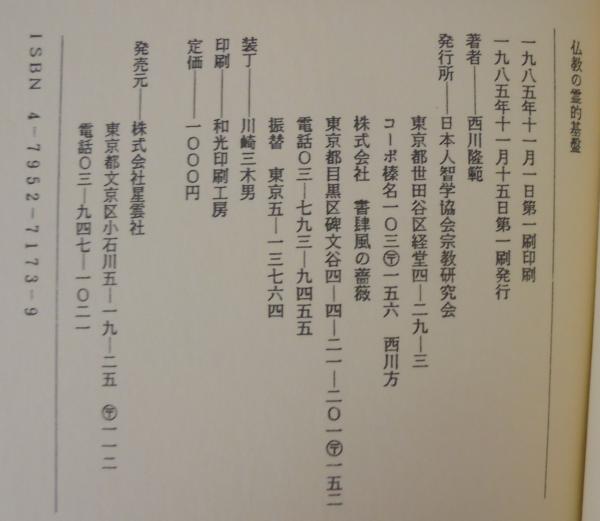 仏教の霊的基盤
一九八五年十一月一日第一刷印刷
一九八五年十一月十五日第一刷発行
著者――西川隆範
発行所――日本人智学協会宗教研究会
東京都世田谷区経堂四―二九―三
コーポ榛名一〇三〶一五六　西川方
株式会社　書肆風の薔薇
東京都目黒区碑文谷四―四―二一―二〇一〶一五二
電話〇三―七九三―九四五五
振替　東京五―一三七六四
装丁――川崎三木男
印刷――和光印刷工房
定価――一〇〇〇円
発売元――株式会社星雲社
東京都文京区小石川五―一九―二五　〶一一二
電話〇三―九四七―一〇二一
ISBN 4-7952-7173-9